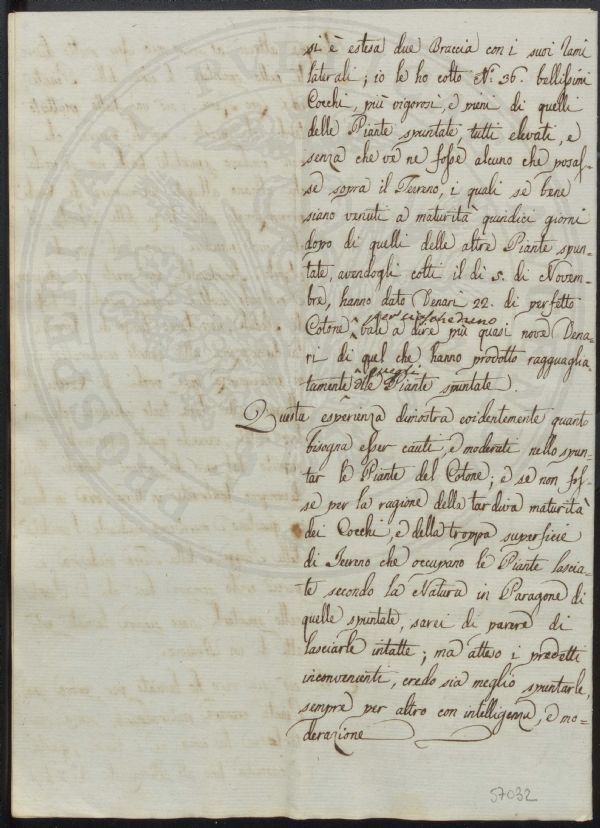 si è estesa due Braccia con i suoi rami
laterali; io le ho colto N. 36. bellissimi
Cocchi, più vigorosi, e pieni di quelli
delle Piante spuntate, tutti elevati, e
senza che ve ne fosse alcuno che posas-
se sopra il Terreno, i quali se bene
siano venuti a maturità quindici giorni
dopo di quelli delle altre Piante spun-
tate, avendogli colti il di 5. di Novem-
bre, hanno dato Denari 22. di perfetto
per ciascheduno
Cotone ^ vale a dire più quasi nove Dena-
ri di quel che hanno prodotto ragguaglia-
tamente le Piante spuntate.
Questa esperienza dimostra evidentemente quanto
bisogna esser cauti, e moderati nello spun-
tar le Piante del Cotone; e se non fos-
se per la ragione della tardiva maturità
dei Cocchi, e della troppa superficie
di Terreno che occupano le Piante lascia-
te secondo la Natura in Paragone di
quelle spuntate, sarei di parere di
lasciarle intatte; ma atteso i predetti
inconvenienti, credo sia meglio spuntarle,
sempre per altro con intelligenza, e mo-
derazione
57032
PROSPERITATI PUBLICAE